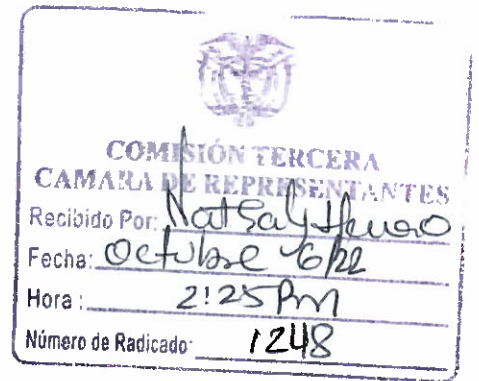 COMISIÓN TERCERA
CAMARA DE REPRESENTANTES
Recibido Por:
Fecha: Octubre 6/22
Hora: 2:25 Pm
Número de Radicado: 1248